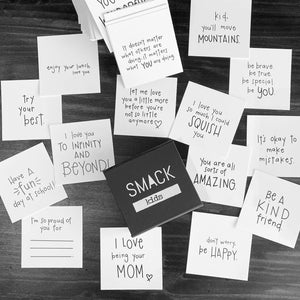 kid,
you'll move
MOUNTAINS.
it doesn't matter
what others are
doing. it matters
what YOU are doing
enjoy your lunch
love you
be brave
be true
be special
be you.
let me love
you a little more
before you're
not so little
anymore
try
your
best.
I love you
so much I could
SQUISH
you
I love you
TO INFINITY
AND
BEYOND!
it's okay to
make
mistakes
You are all
sorts of
AMAZING.
Have a
fun
day at school!
SMACK
kids
Be A
KIND
friend
I'm so proud of
you for
I LOVE
being your
MOM.
don't worry.
be HAPPY.